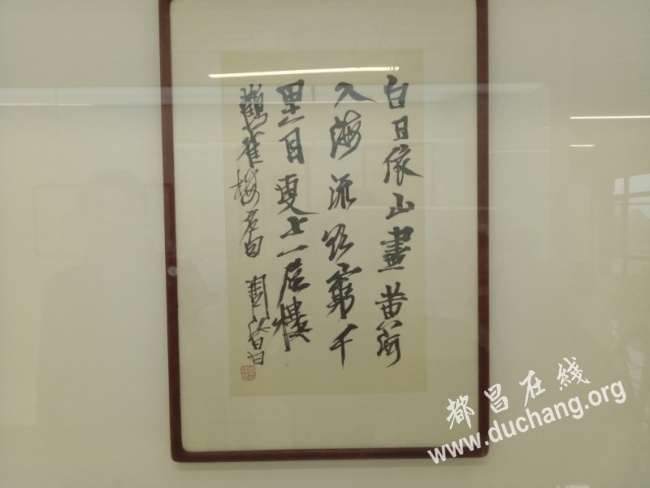 白日依山盡黄河
入海流欲窮千
里目更上一层樓
鸛雀樓 周汝昌
都昌在线
www.duchang.org